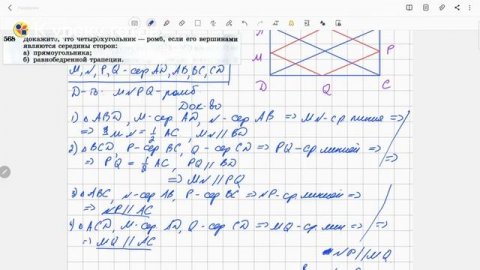 568 Докажите, что четырёхугольник — ромб, если его вершинами
являются середины сторон:
а) прямоугольника;
б) равнобедренной трапеции.
M, N, P, Q - сер AD, AB, BC, CD
Д-ть: MNPQ - ромб
Док-во
1) △ABD, M - сер AD, N - сер AB ⇒ MN - ср линия ⇒
⇒ MN = 1/2 AC, MN || BD
2) △BCD, P - сер BC, Q - сер CD ⇒ PQ - ср линия ⇒
⇒ PQ = 1/2 AC, PQ || BD
⇒ MN || PQ
3) △ABC, N - сер AB, P - сер BC ⇒ NP - ср линия ⇒
⇒ NP || AC
4) △ACD, M - сер AD, Q - сер CD ⇒ MQ - ср лин ⇒
⇒ MQ || AC
NP || MQ
M
P
D
Q
C